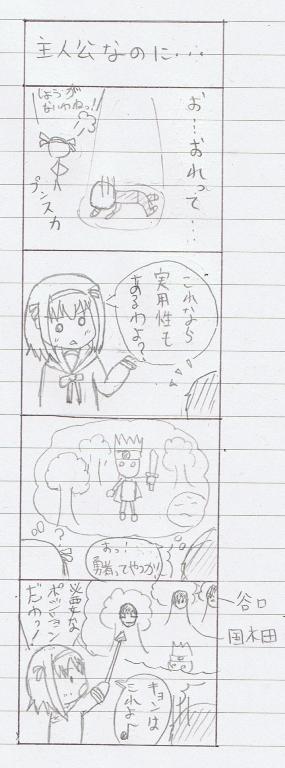 主人公なのに…
お…おれって…
しょうが
ないわねっ!!
プンスカ
これなら
実用性も
あるわよ?
?
おっ!
勇者ってやつか
必要な
ポジション
だわっ!
キョンは
これよ♪
谷口
国木田